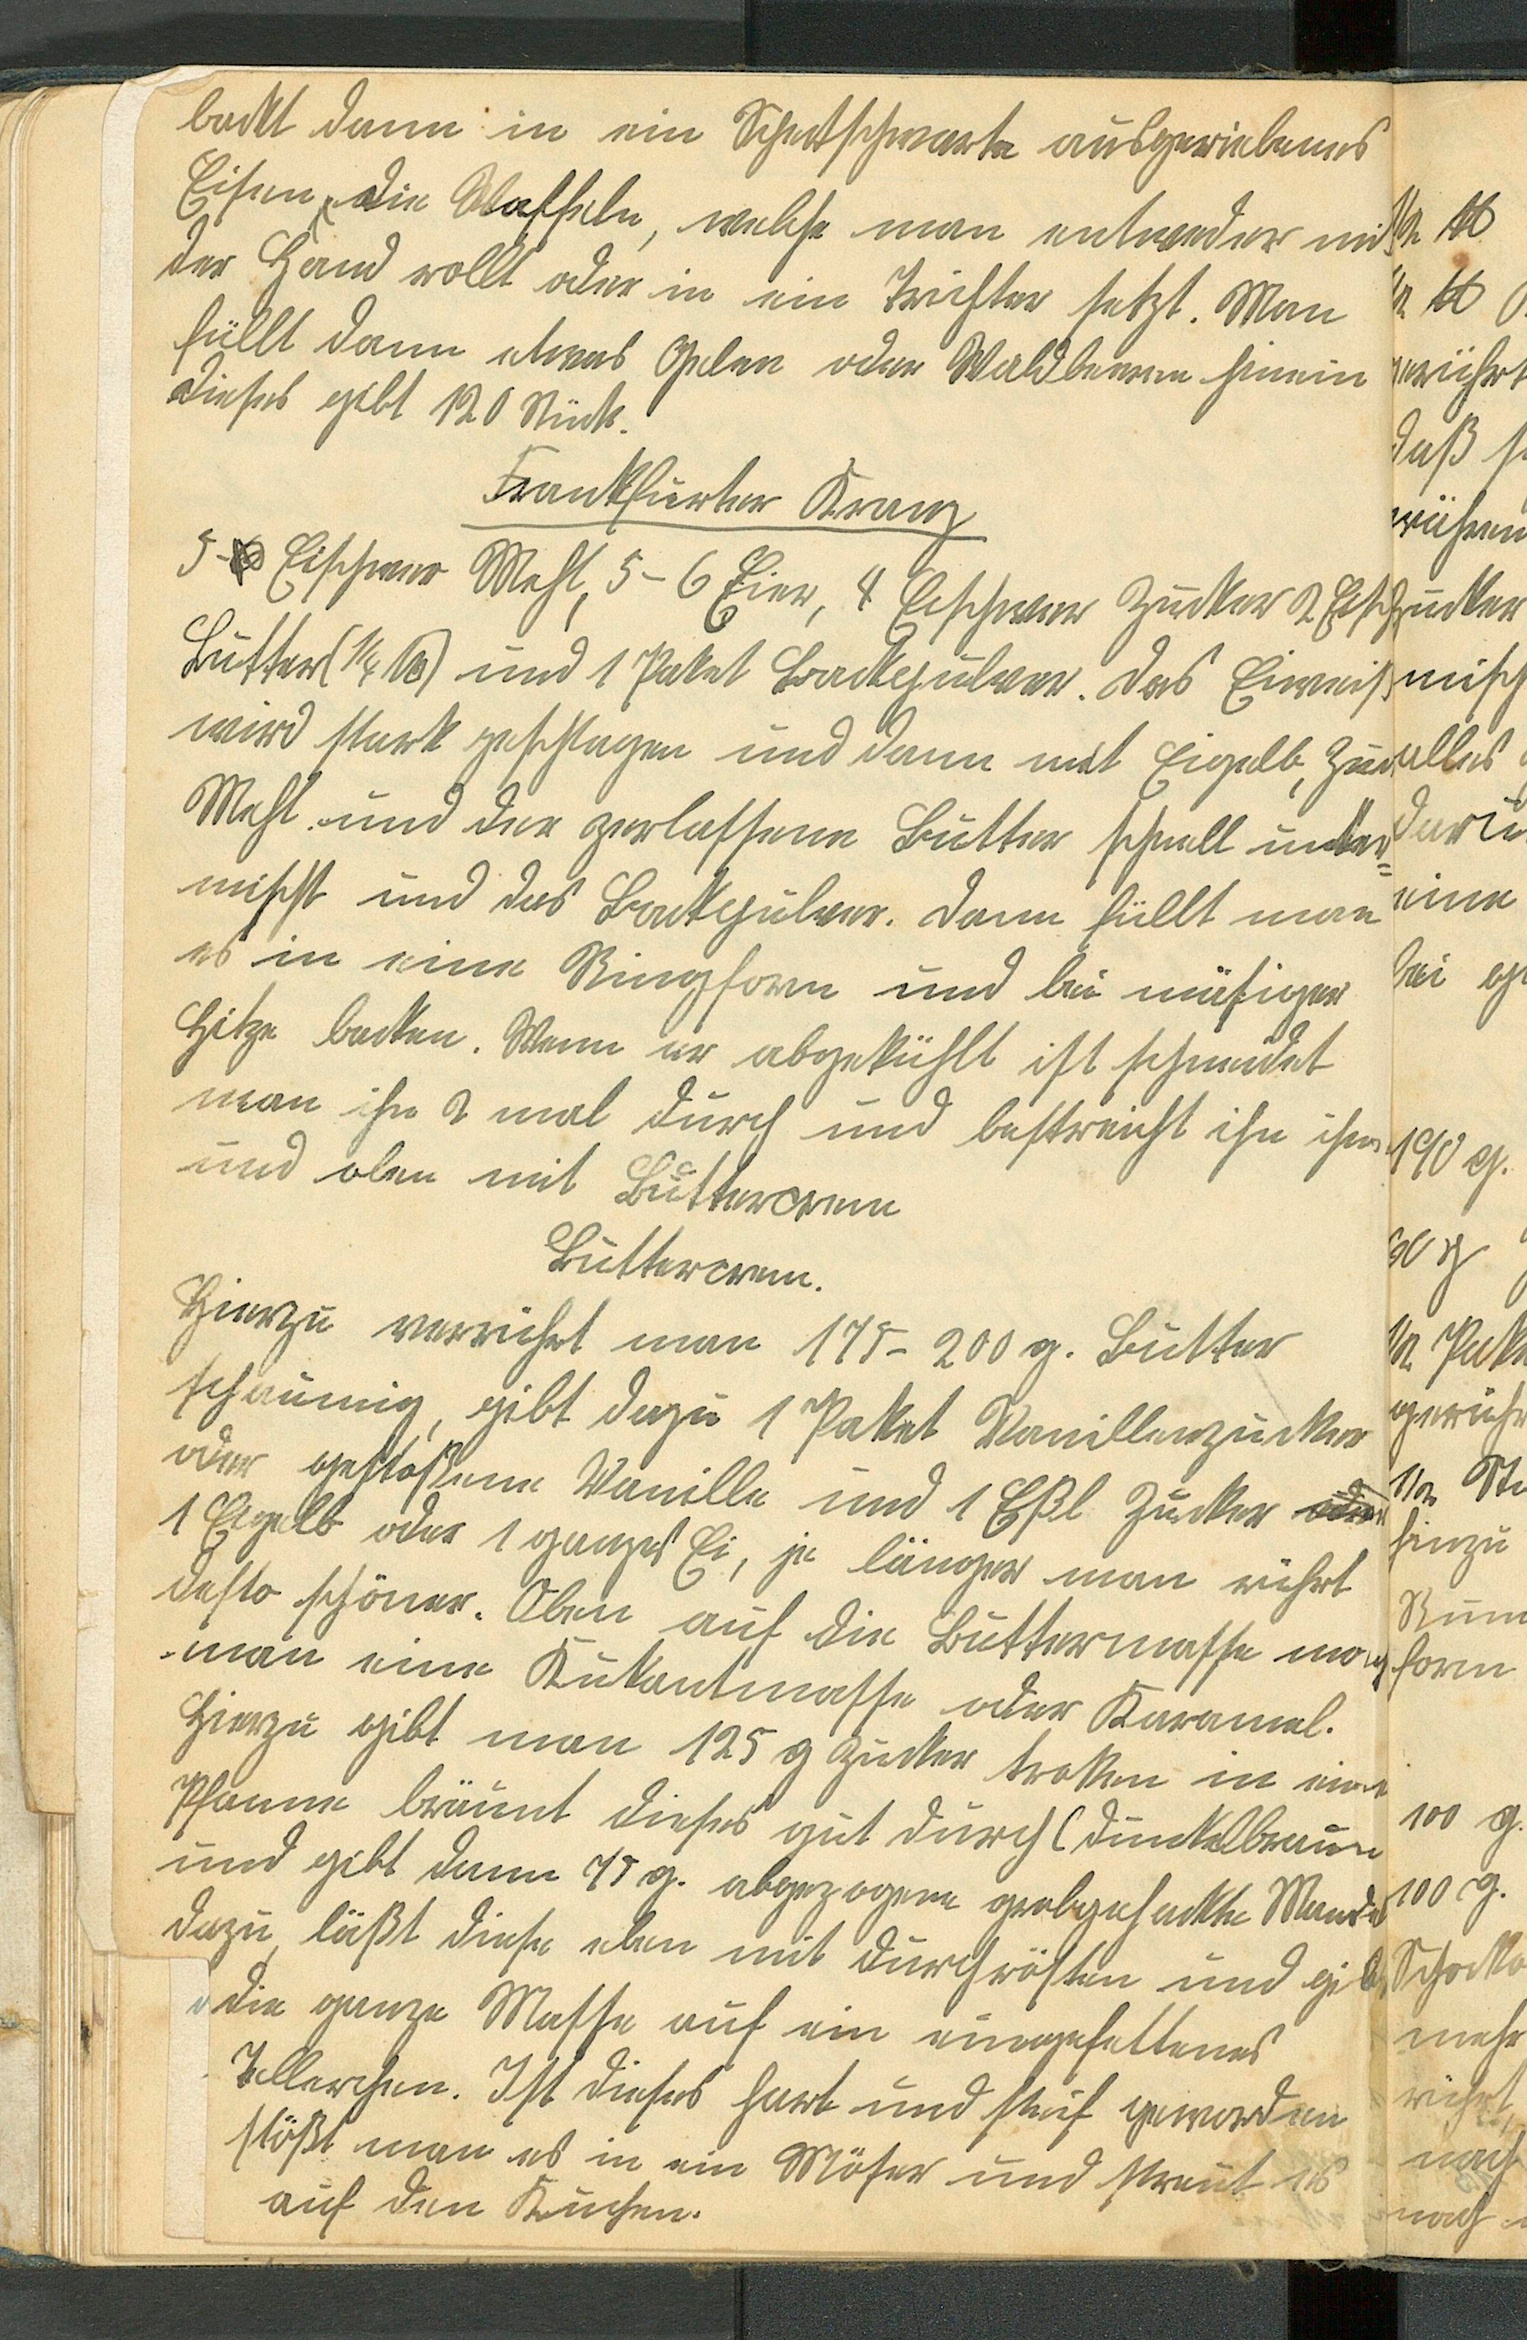 backt dann in ein Schwarte ausgeriebenes
Eisen, die Waffeln, welche man entweder mit
der Hand rollt oder in ein Trichter setzt. Man
füllt dann etwas Gelee oder Waldbeeren hinein
dieses gibt 120 Stück.
Frankfurter Kranz
5- Eischwer Mehl, 5-6 Eier, 4 Eischwer Zucker 2 Eisch
Butter (1/4 ℔) und 1 Paket Backpulver. Das Eiweiß
wird stark geschlagen und dann mit Eigelb, Zuc
Mehl und der zerlassene Butter schnell unter=
mischt und das Backpulver. Dann füllt man
es in eine Ringform und bei mäßiger
Hitze backen. Wenn er abgekühlt ist schneidet
man ihn 2 mal durch und bestreicht ihn
und oben mit Buttercreme
Buttercrem.
Hierzu verrührt man 175-200 g. Butter
schaumig, gibt dazu 1 Paket Vanillenzucker
oder gestoßene Vanille und 1 Eßl Zucker oder
1 Eigelb oder 1 ganzes Ei, je länger man rührt
desto schöner. Oben auf die Buttermasse
man eine Kukantmasse oder Karamel.
Hierzu gibt man 125 g Zucker troken in eine
Pfanne bräunt dieses gut durch (dunkelbraun
und gibt dann 75 g. abgezogene grobgehackte Mandel
dazu, läßt diese eben mit durchrösten und gibt
die ganze Masse auf ein eingefettenes
Tellerchen. Ist dieses hart und steif geworden
stößt man es in ein Möser und streut es
auf den Kuchen.
1/2 ℔
1/2 ℔
gerührt
daß
rühren
Zucker
misch
alles
darü
eine
bei
190 g.
1/2 Pake
gerühr
1/2
hinzu
Rum
form
100 g.
100 g.
Schocko
mehr
rührt,
nach
noch